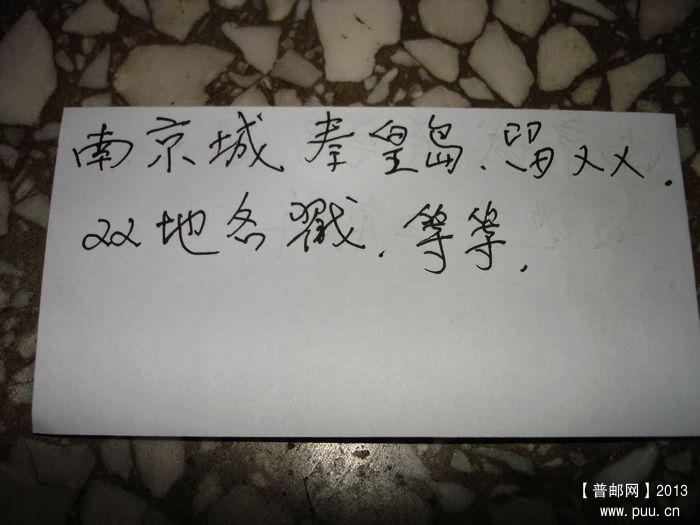 南京城 秦皇岛、留双.
双地名戳. 等等.
【普邮网】2013
www.puu.cn